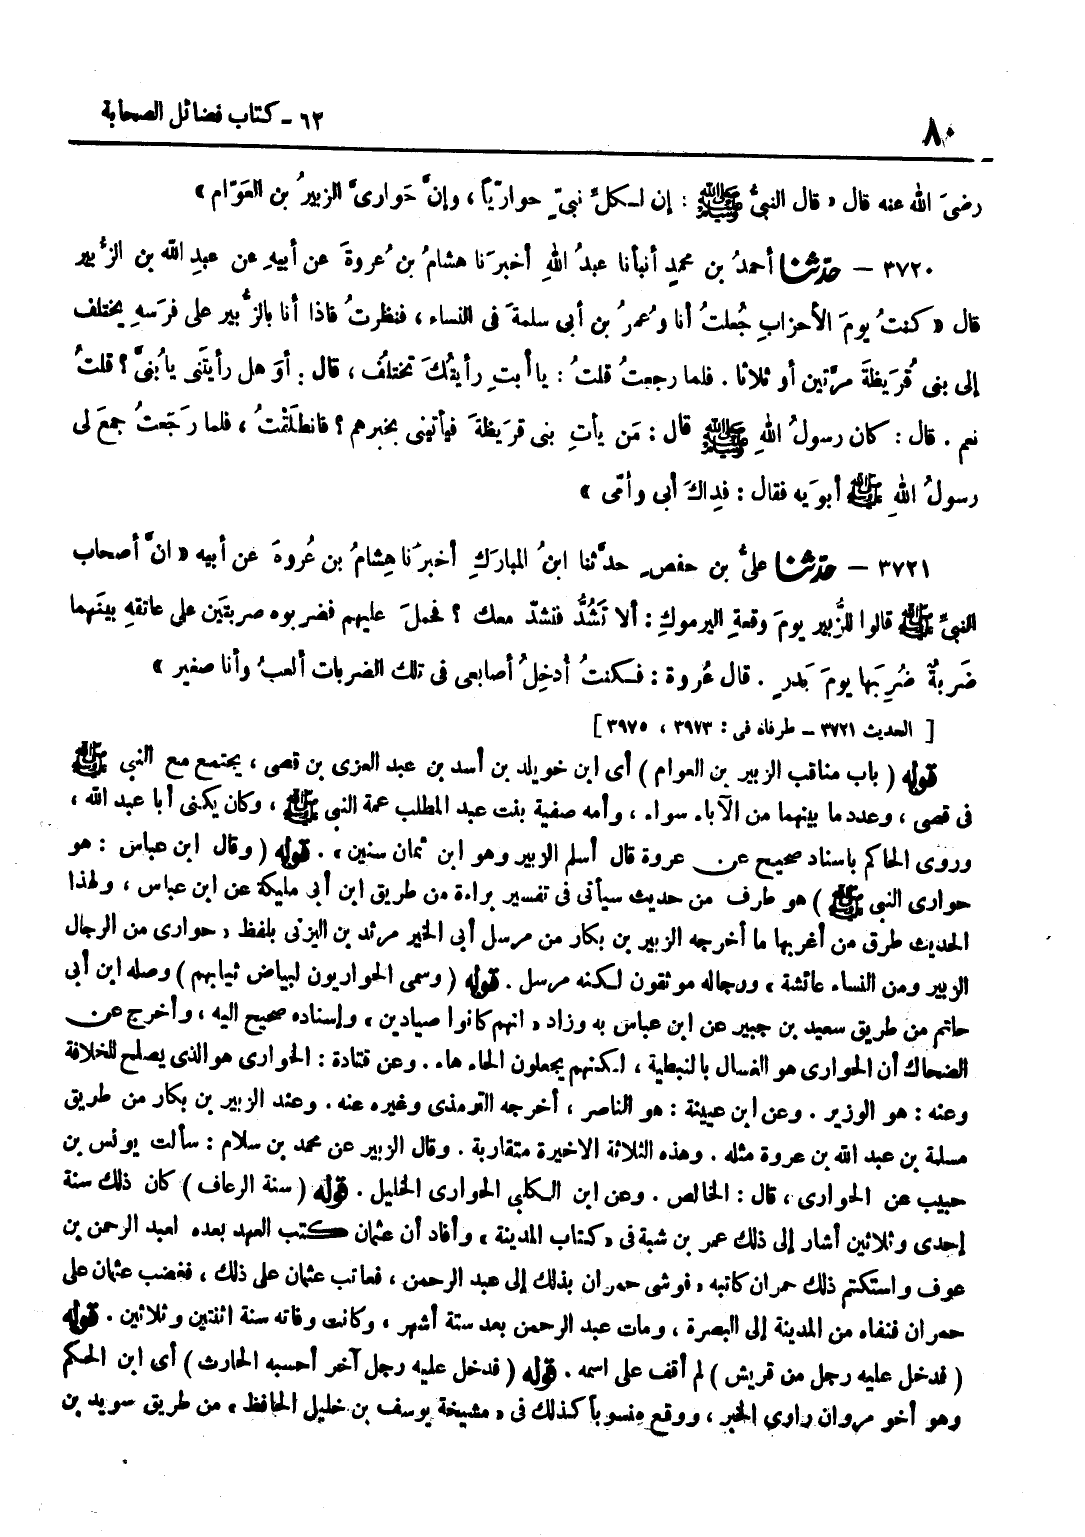 ٨٠
٦٢ - كتاب فضائل الصحابة
رضىَ الله عنه قال « قال النبىُّ ﷺ : إن لـكلِّ نبىّ حواريّاً ، وإنَّ حَوارىَّ الزبيرُ بن العَوّام »
٣٧٢٠ – حدّثنا أحمدُ بن محمدٍ أنبأنا عبدُ اللهِ أخبرَنا هشامُ بن عُروةَ عن أبيهِ عن عبدِ الله بن الزُّبير
قال « كنتُ يومَ الأحزابِ جُعلتُ أنا وعُمرُ بن أبى سلمةَ فى النساء ، فنظرتُ فاذا أنا بالزُّبير على فرَسهِ يختلف
إلى بنى قُرَيظةَ مرَّتين أو ثلاثا . فلما رجعتُ قلتُ : يا أبتِ رأيتُكَ تختلفُ ، قال : أوَ هل رأيتَنى يا بُنىَّ ؟ قلتُ
نعم . قال : كان رسولُ اللهِ ﷺ قال : مَن يأتِ بنى قريظةَ فيأتينى بخبرهم ؟ فانطلَقْتُ ، فلما رَجَعتُ جمعَ لى
رسولُ اللهِ ﷺ أبوَيه فقال : فداكَ أبى وأمّى »
٣٧٢١ – حدّثنا علىُّ بن حفصٍ حدَّثنا ابنُ المباركِ أخبرَنا هِشامُ بن عُروةَ عن أبيه « انَّ أصحاب
النبىِّ ﷺ قالوا للزُّبير يومَ وقعةِ اليرموكِ : ألا تَشُدُّ فنشدّ معك ؟ فحملَ عليهم فضربوه ضربتَين على عاتقهِ بينَهما
ضَربةٌ ضُرِبَها يومَ بَدرٍ . قال عُروة : فـكنتُ أُدخِلُ أصابعى فى تلك الضربات ألعبُ وأنا صغير »
[ الحديث ٣٧٢١ – طرفاه فى : ٣٩٧٣ ، ٣٩٧٥]
قوله ( باب مناقب الزبير بن العوام ) أى ابن خويلد بن أسد بن عبد العزى بن قصى ، يجتمع مع النبى ﷺ
فى قصى ، وعدد ما بينهما من الآباء سواء ، وأمه صفية بنت عبد المطلب عمة النبى ﷺ ، وكان يكنى أبا عبد الله ،
وروى الحاكم باسناد صحيح عن عروة قال « أسلم الزبير وهو ابن ثمان سنين » . قوله ( وقال ابن عباس : هو
حوارى النبى ﷺ ) هو طرف من حديث سيأتى فى تفسير براءة من طريق ابن أبى مليكة عن ابن عباس ، ولهذا
الحديث طرق من أغربها ما أخرجه الزبير بن بكار من مرسل أبى الخير مرثد بن اليزنى بلفظ « حوارى من الرجال
الزبير ومن النساء عائشة » ورجاله موثقون لـكنه مرسل . قوله ( وسمى الحواريون لبياض ثيابهم ) وصله ابن أبى
حاتم من طريق سعيد بن جبير عن ابن عباس به وزاد « انهم كانوا صيادين » وإسناده صحيح اليه ، وأخرج عن
الضحاك أن الحوارى هو الغسال بالنبطية ، لـكنهم يجعلون الحاء هاء . وعن قتادة : الحوارى هو الذى يصلح للخلافة
وعنه : هو الوزير . وعن ابن عيينة : هو الناصر ، أخرجه الترمذى وغيره عنه . وعند الزبير بن بكار من طريق
مسلمة بن عبد الله بن عروة مثله . وهذه الثلاثة الاخيرة متقاربة . وقال الزبير عن محمد بن سلام : سألت يونس بن
حبيب عن الحوارى ، قال : الخالص . وعن ابن الـكلبى الحوارى الخليل . قوله ( سنة الرعاف ) كان ذلك سنة
إحدى وثلاثين أشار إلى ذلك عمر بن شبة فى « كتاب المدينة » وأفاد أن عثمان كتب العهد بعده لعبد الرحمن بن
عوف واستكتم ذلك حمران كاتبه ، فوشى حمران بذلك إلى عبد الرحمن ، فعاتب عثمان على ذلك ، فغضب عثمان على
حمران فنفاه من المدينة إلى البصرة ، ومات عبد الرحمن بعد ستة أشهر ، وكانت وفاته سنة اثنتين وثلاثين . قوله
( فدخل عليه رجل من قريش ) لم أقف على اسمه . قوله ( فدخل عليه رجل آخر أحسبه الحارث ) أى ابن الحكم
وهو أخو مروان راوى الخبر ، ووقع منسوباً كذلك فى « مشيخة يوسف بن خليل الحافظ » من طريق سويد بن